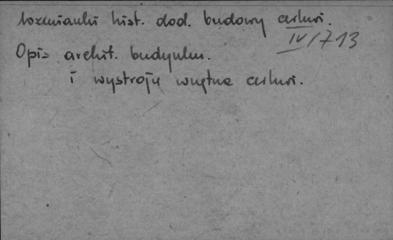 wzmianki hist. dod. budowy cerkwi.
IV/713
Opis archit. budynku.
i wystroju wnętrza cerkwi.